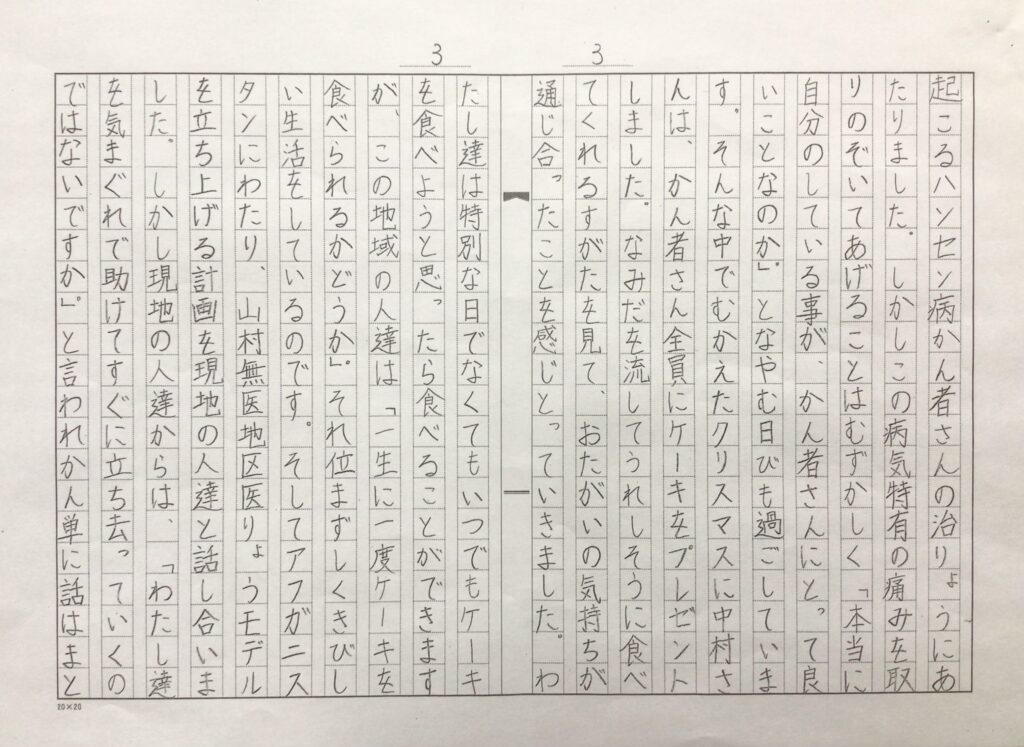 3
3
起こるハンセン病かん者さんの治りょうにあ
たりました。しかしこの病気特有の痛みを取
りのぞいてあげることはむずかしく「本当に
自分のしている事が、かん者さんにとって良
いことなのか」。となやむ日びも過ごしていま
す。そんな中でむかえたクリスマスに中村さ
んは、かん者さん全員にケーキをプレゼント
しました。なみだを流してうれしそうに食べ
てくれるすがたを見て、おたがいの気持ちが
通じ合ったことを感じとっていきました。わ
たし達は特別な日でなくてもいつでもケーキ
を食べようと思ったら食べることができます
が、この地域の人達は「一生に一度ケーキを
食べられるかどうか」。それ位まずしくきびし
い生活をしているのです。そしてアフガニス
タンにわたり、山村無医地区医りょうモデル
を立ち上げる計画を現地の人達と話し合いま
した。しかし現地の人達からは、「わたし達
を気まぐれで助けてすぐに立ち去っていくの
ではないですか」。と言われかん単に話はまと
20×20